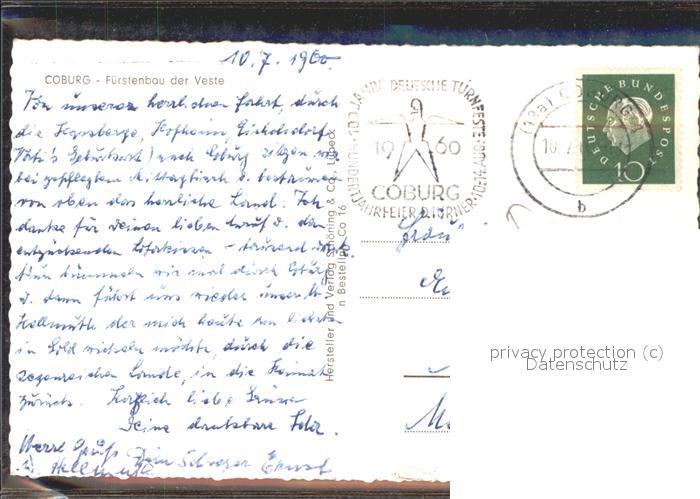 10.7.1960.
COBURG - Fürstenbau der Veste
Von unserer herrlichen Fahrt, durch
die Hassberge, Hofheim, Eichelsdorf
Geburtsort) nach Coburg sitzen wir
bei gepflegtem Mittagtisch u. bestaunen
von oben das herrliche Land. Ich
danke für Deinen lieben u. den
entzückenden - tausend Dank.
Nun bummeln wir mal durch Coburg
u. dann führt uns wieder unser
Hellmuth der mich heute am liebsten
in Gold wickeln möchte, durch die
segensreichen Lande, in die Heimat
zurück. Herzlich liebe Grüsse
Deine dankbare
Grüße Dein Schwager Ernst
Hellmuth
Hersteller und Verlag Schöning & Co., Lübeck
n Bestellnr. Co 16
100 JAHRE DEUTSCHE TURNFESTE
1960
COBURG
HUNDERTJAHRFEIER D. TURNER 10.-14. AUG.
(13a) COBURG 1
10.7.
b
DEUTSCHE BUNDESPOST
10
Frau
privacy protection (c)
Datenschutz